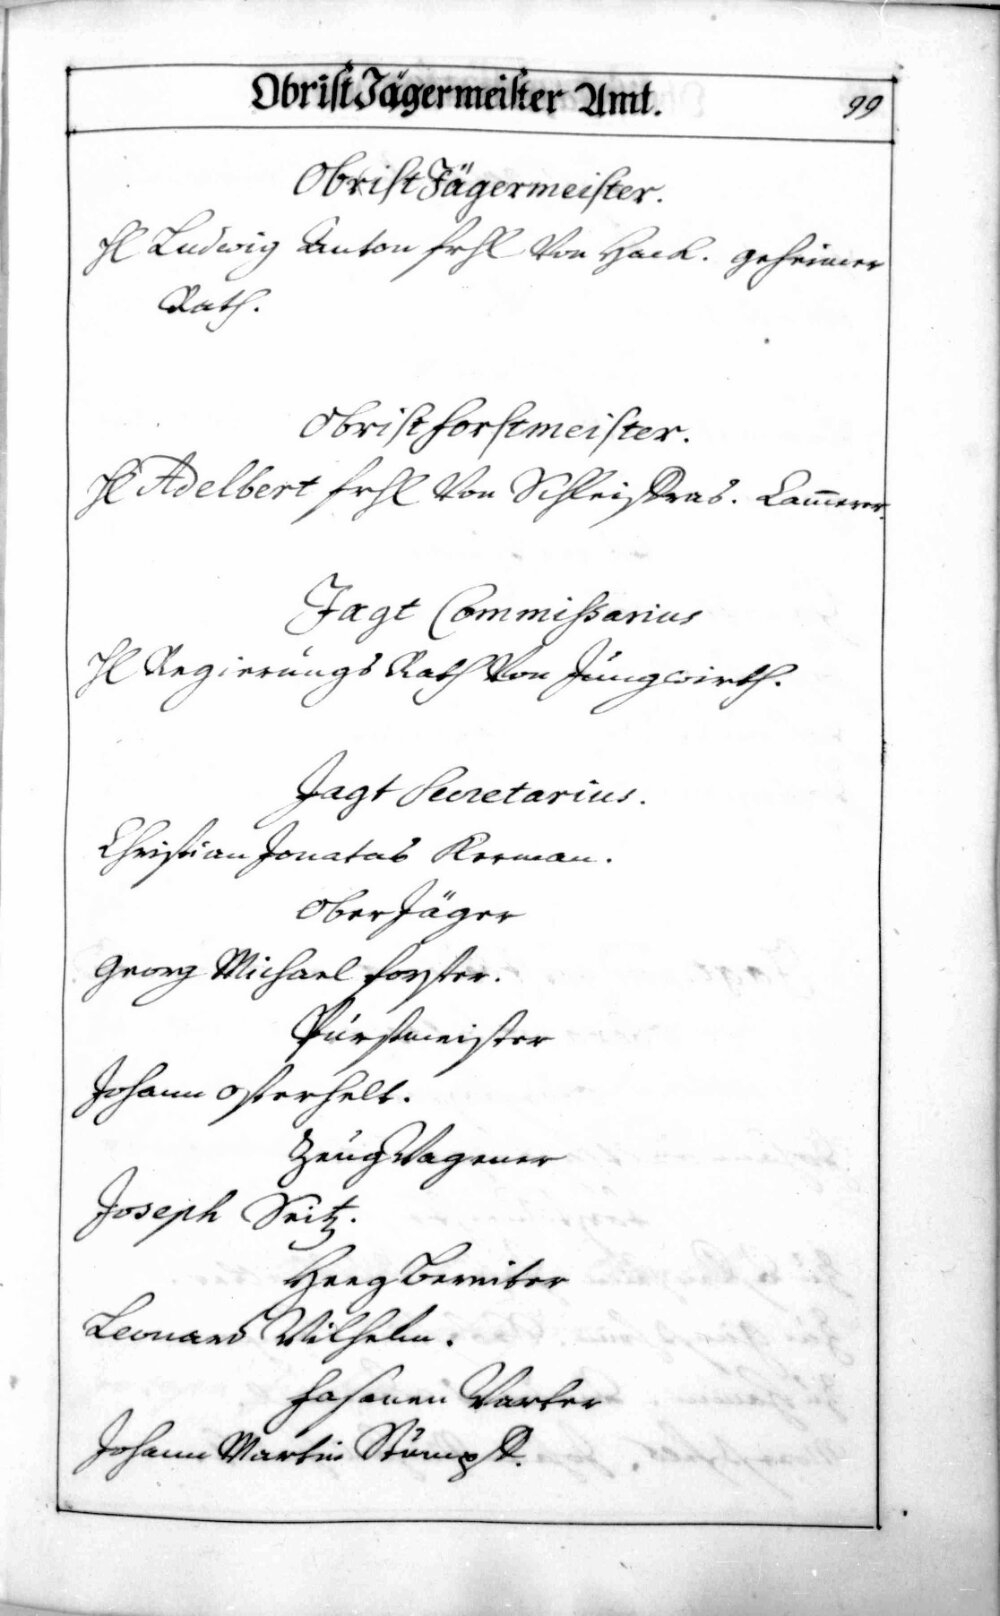 Obrist Jägermeister Amt.
99
Obrist Jägermeister.
Hl Ludwig Anton frhl Von Hack. geheimer
Rath.
Obrist forstmeister.
Hl Adelbert frhl Von Schleisdras. Cam̅erer.
Jagt Commißarius
Hl Regierungs Rath Von Jüngwirth.
Jagt Secretarius.
Christian Jonatas Kerman.
Ober Jäger
Georg Michael forster.
Pürstmeister
Johann osterhelt.
Zeüg Wagener
Joseph Seitz.
Leonard Wilhelm.
fasanen Warter
Johann Martin Stümpff.